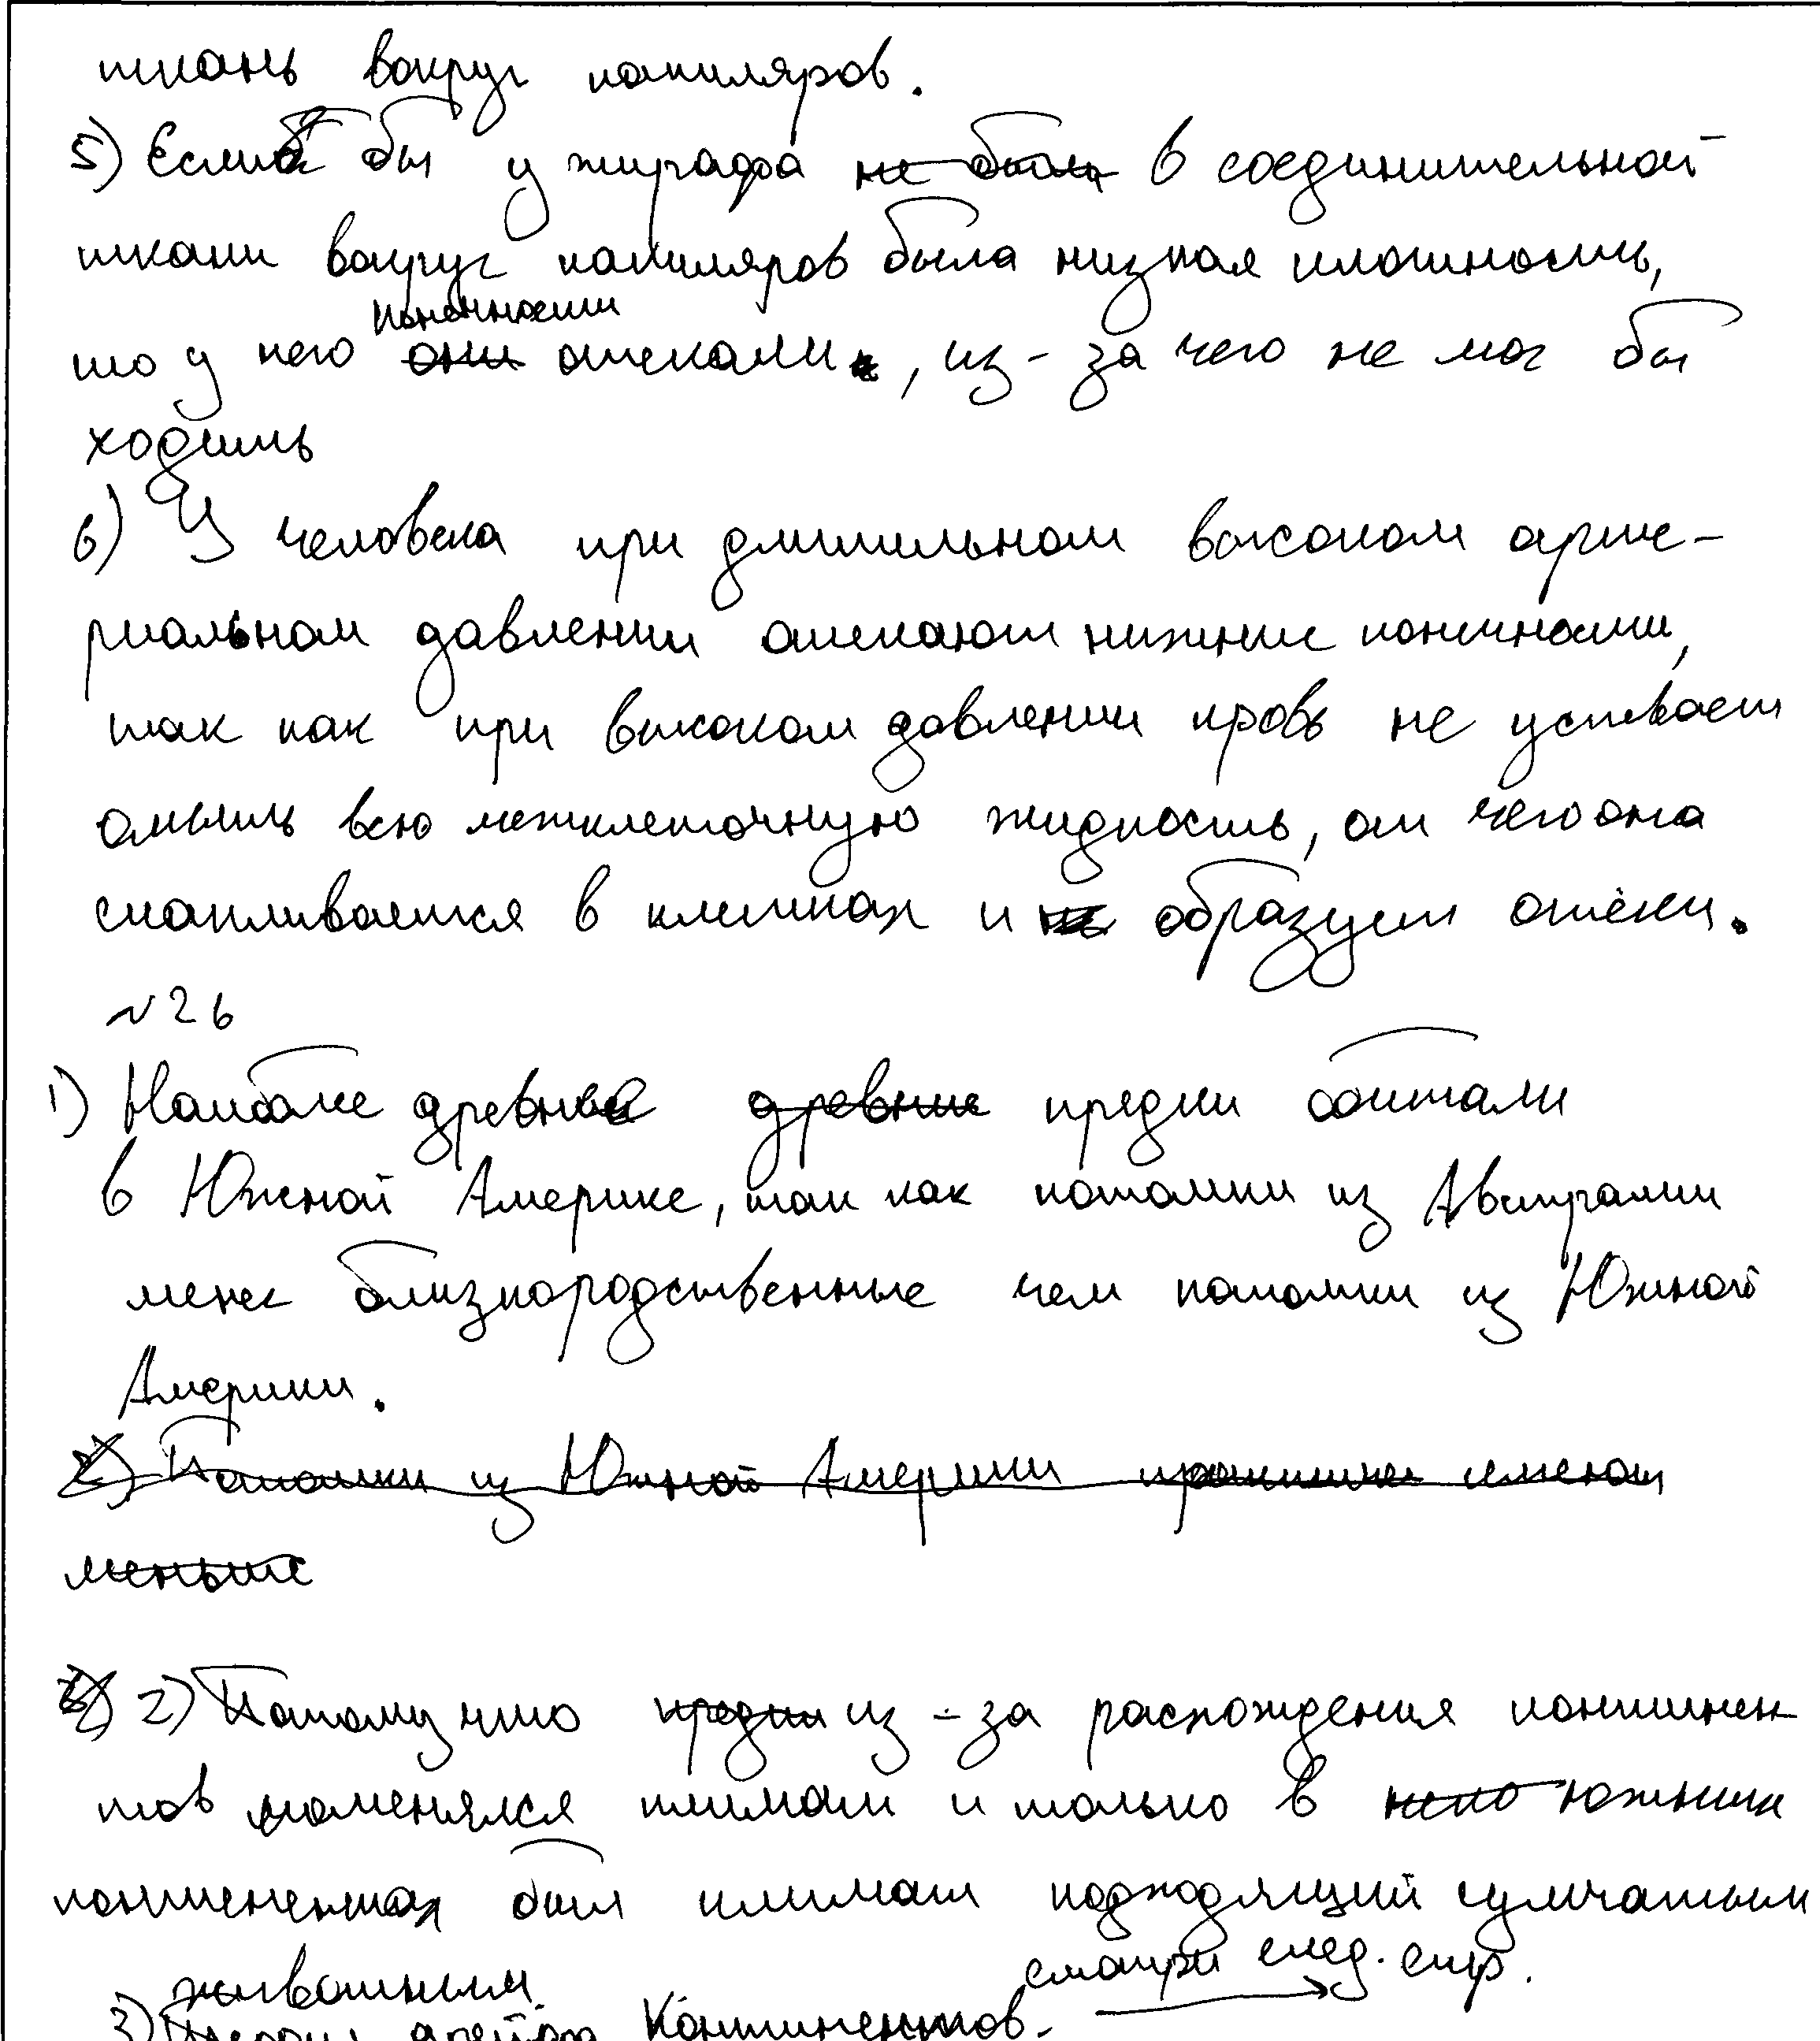 ткань вокруг капиляров.
5) Если бы у жирафа не была в соединительной
ткани вокруг капиляров была низкая плотность,
конечности
то у него они отекали, из-за чего не мог бы
ходить
6) У человека при длительном высоком арте-
риальном давлении отекают нижние конечности,
так как при высоком давлении кровь не успевает
отмыть всю межклеточную жидкость, от чего она
скапливается в клетках и образует отёки.
№26
1) Наиболе древние древние предки обитали
в Южной Америке, так как потомки из Австралии
менее близкородственные чем потомки из Южной
Америки.
2) Потомки из Южной Америки имеют
меньше
2) Потому что предки из-за расхождения континен
тов поменялся климат и только в южных
континентах был климат подходящий сумчатым
животным.
смотри след. стр.
3) Теория дрейфа континентов.